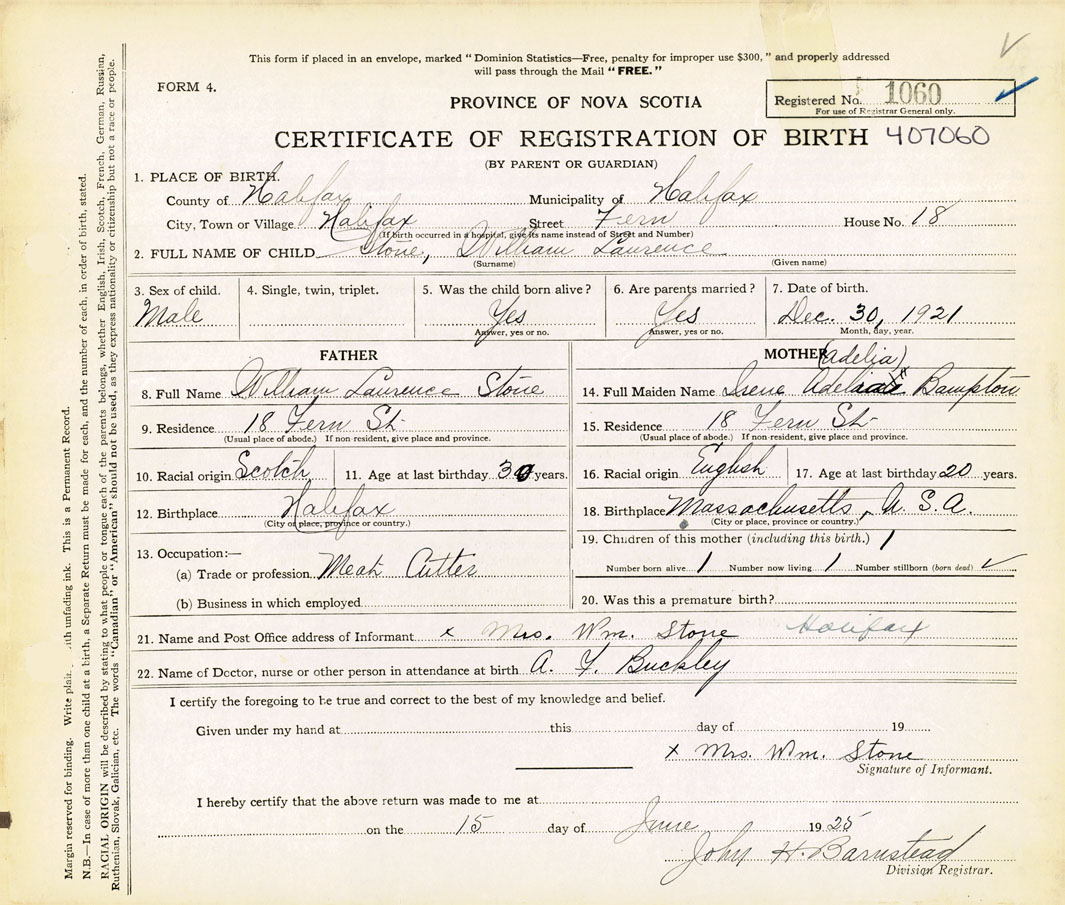 This form if placed in an envelope, marked "Dominion Statistics—Free, penalty for improper use $300," and properly addressed
will pass through the Mail "FREE."
FORM 4.
PROVINCE OF NOVA SCOTIA
Registered No. 1060
For use of Registrar General only.
CERTIFICATE OF REGISTRATION OF BIRTH 407060
(BY PARENT OR GUARDIAN)
1. PLACE OF BIRTH.
County of Halifax Municipality of Halifax
City, Town or Village Halifax Street Fern House No. 18
(If birth occurred in a hospital, give its name instead of Street and Number)
2. FULL NAME OF CHILD Stone, William Laurence
(Surname) (Given name)
3. Sex of child. 4. Single, twin, triplet. 5. Was the child born alive? 6. Are parents married? 7. Date of birth.
Male Yes Yes Dec. 30, 1921
Answer, yes or no. Answer, yes or no. Month, day, year.
FATHER MOTHER (Adelia)
8. Full Name William Laurence Stone 14. Full Maiden Name Irene Bampton
9. Residence 18 Fern St. 15. Residence 18 Fern St.
(Usual place of abode.) If non-resident, give place and province. (Usual place of abode.) If non-resident, give place and province.
10. Racial origin Scotch 11. Age at last birthday 30 years. 16. Racial origin English 17. Age at last birthday 20 years.
12. Birthplace Halifax 18. Birthplace Massachusetts, U.S.A.
(City or place, province or country.) (City or place, province or country.)
13. Occupation:— 19. Children of this mother (including this birth.) 1
(a) Trade or profession Meat Cutter Number born alive 1 Number now living 1 Number stillborn (born dead) ✓
(b) Business in which employed 20. Was this a premature birth?
21. Name and Post Office address of Informant x Mrs. Wm. Stone Halifax
22. Name of Doctor, nurse or other person in attendance at birth A. F. Buckley
I certify the foregoing to be true and correct to the best of my knowledge and belief.
Given under my hand at this day of 19
x Mrs. Wm. Stone
Signature of Informant.
I hereby certify that the above return was made to me at
on the 15 day of June 1925
John H. Barnstead
Division Registrar.
Margin reserved for binding. Write plai with unfading ink. This is a Permanent Record.
N.B.—In case of more than one child at a birth, a Separate Return must be made for each, and the number of each, in order of birth, stated.
RACIAL ORIGIN will be described by stating to what people or tongue each of the parents belongs, whether English, Irish, Scotch, French, German, Russian,
Ruthenian, Slovak, Galician, etc. The words "Canadian" or "American" should not be used, as they express nationality or citizenship but not a race or people.